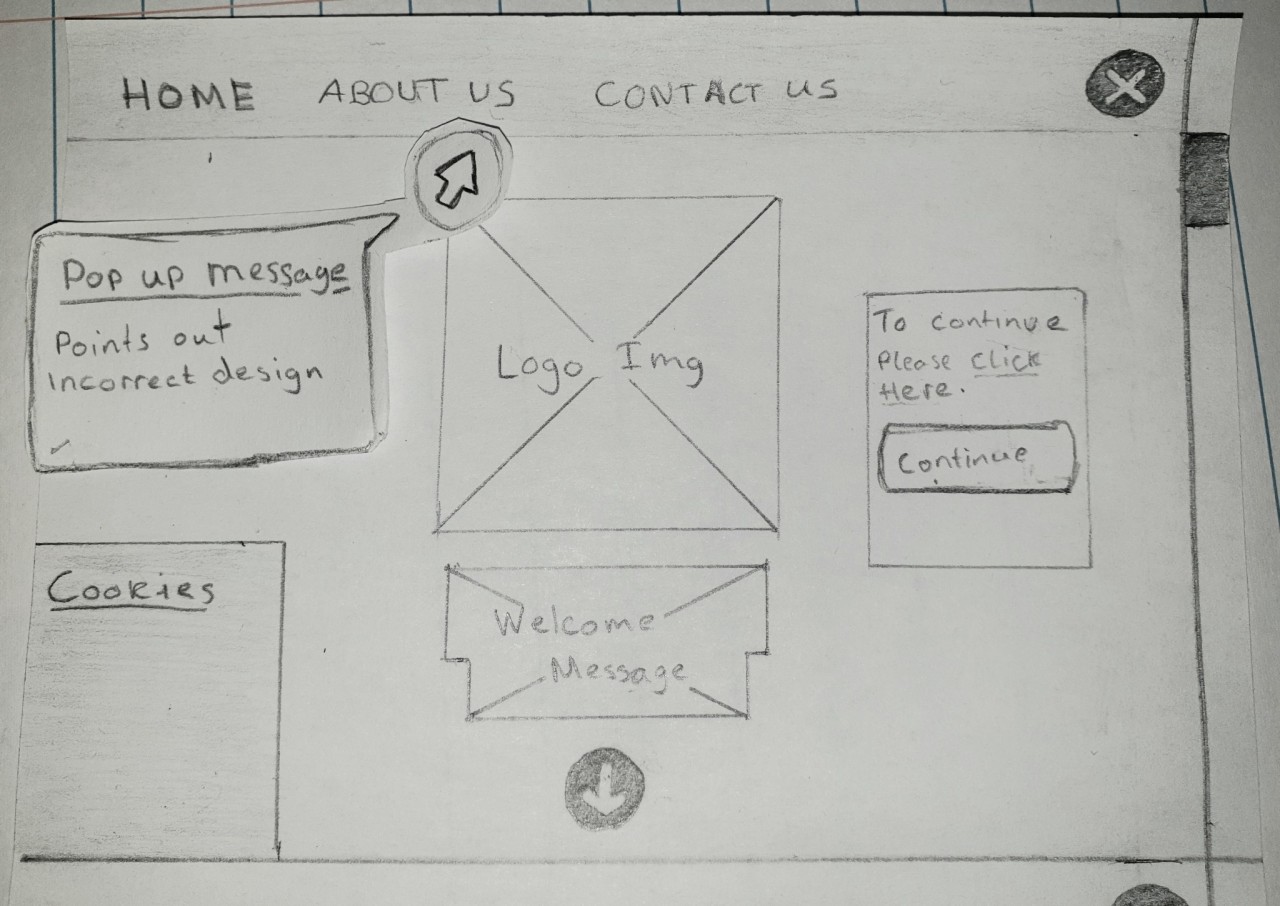 HOME ABOUT US CONTACT US
Pop up message
Points out
incorrect design
Logo Img
To continue
Please click
Here.
Continue
Cookies
Welcome
Message